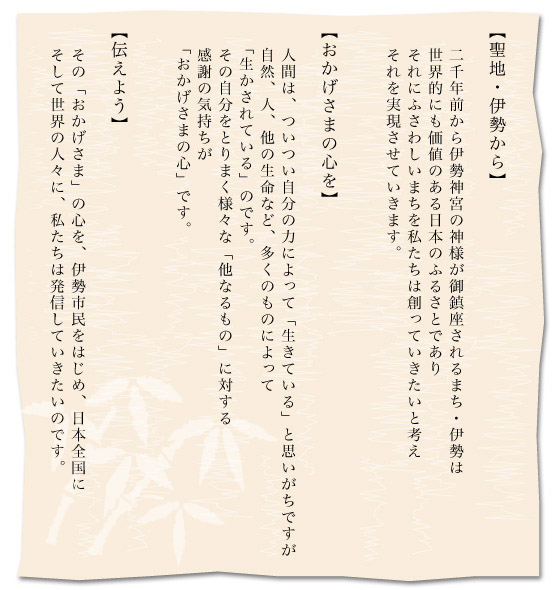 【聖地・伊勢から】
二千年前から伊勢神宮の神様が御鎮座されるまち・伊勢は
世界的にも価値のある日本のふるさとであり
それにふさわしいまちを私たちは創っていきたいと考え
それを実現させていきます。
【おかげさまの心を】
人間は、ついつい自分の力によって「生きている」と思いがちですが
自然、人、他の生命など、多くのものによって
「生かされている」のです。
その自分をとりまく様々な「他なるもの」に対する
感謝の気持ちが
「おかげさまの心」です。
【伝えよう】
その「おかげさま」の心を、伊勢市民をはじめ、日本全国に
そして世界の人々に、私たちは発信していきたいのです。